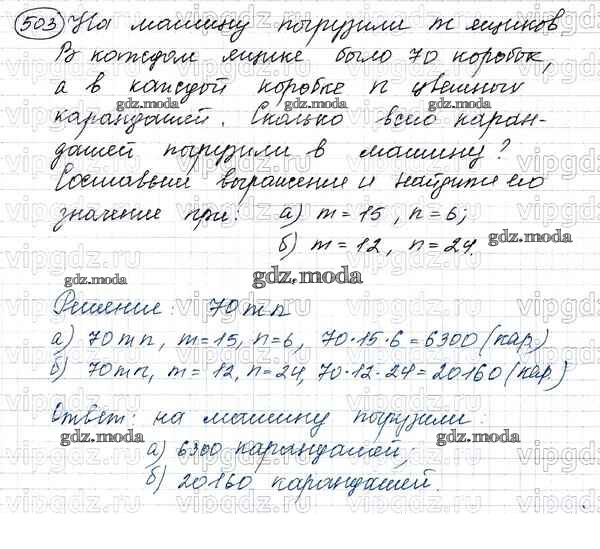 503 На машину погрузили m ящиков,
В каждом ящике было 70 коробок,
а в каждой коробке n цветных
карандашей. Сколько всего каран-
дашей погрузили в машину?
Составьте выражение и найдите его
значение при: а) m = 15, n = 6;
б) m = 12, n = 24.
gdz.moda
Решение: 70mn
а) 70mn, m = 15, n = 6, 70·15·6 = 6300 (кар.)
б) 70mn, m = 12, n = 24, 70·12·24 = 20160 (кар.)
Ответ: на машину погрузили:
а) 6300 карандашей;
б) 20160 карандашей.